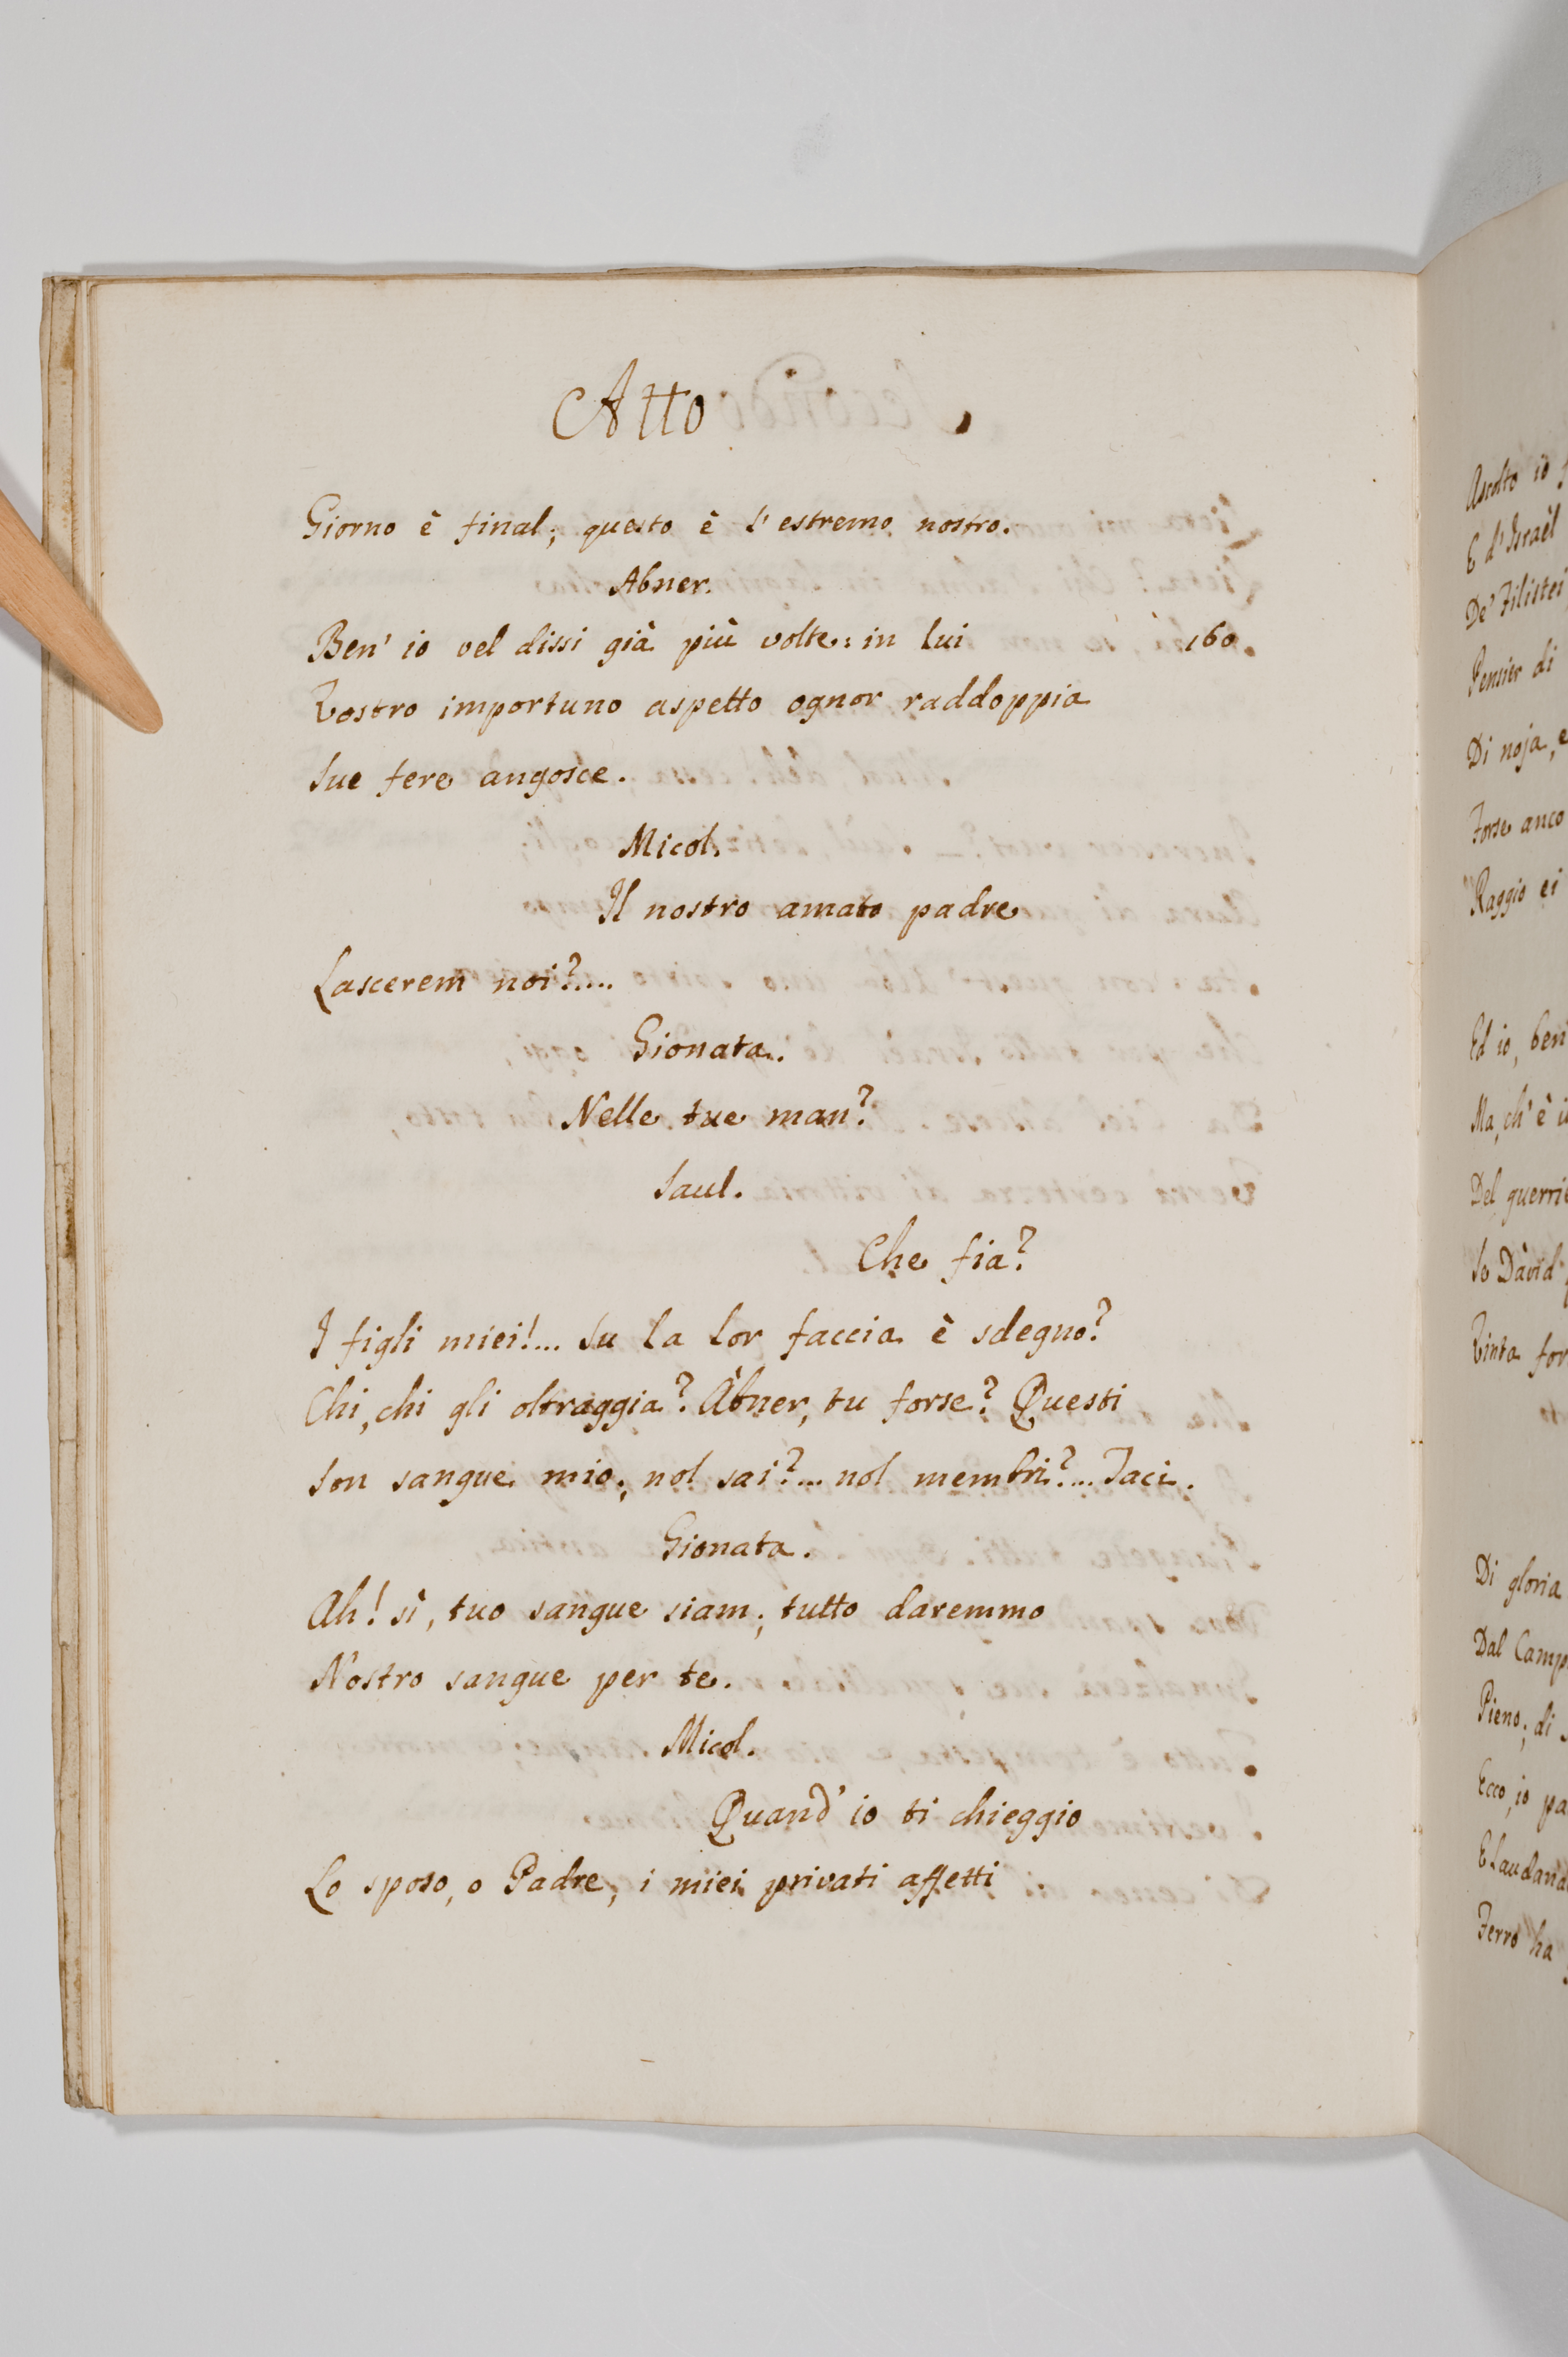 Atto
Giorno è final; questo è l'estremo nostro.
Abner.
Ben' io vel dissi già più volte: in lui 160.
Vostro importuno aspetto ognor raddoppia
Sue fere angosce.
Micol.
Il nostro amato padre
Lascerem noi?....
Gionata.
Nelle tue man?
Saul.
Che fia?
I figli miei!... Su la lor faccia è sdegno?
Chi, chi gli oltraggia? Àbner, tu forse? Questi
Son sangue mio; nol sai?... nol membri?... Taci.
Gionata.
Ah! sì, tuo sangue siam; tutto daremmo
Nostro sangue per te.
Micol.
Quand' io ti chieggio
Lo sposo, o Padre, i miei privati affetti
Ascolto io
E d'Israël
De' Filistei
Pensier di
Di noja, e
Forse anco
Raggio ei
Ed io, ben
Ma, ch' è
Del guerrie
Se Dàvid
Vinta for
Di gloria
Dal Camp
Pieno; di
Ecco, io pa
E laudand
Ferro ha